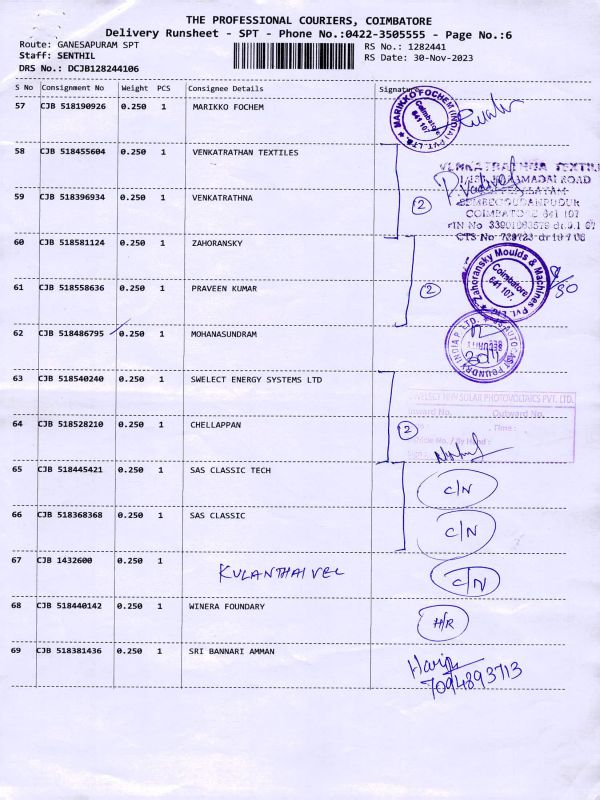 THE PROFESSIONAL COURIERS, COIMBATORE
Delivery Runsheet - SPT - Phone No.:0422-3505555 - Page No.:6
Route: GANESAPURAM SPT
RS No.: 1282441
Staff: SENTHIL
RS Date: 30-Nov-2023
DRS No.: DCJB128244106
S No Consignment No Weight PCS Consignee Details Signature
57 CJB 518190926 0.250 1 MARIKKO FOCHEM
MARIKKO FOCHEM (INDIA) PVT. LTD.
Coimbatore
641 107.
58 CJB 518455604 0.250 1 VENKATRATHAN TEXTILES
59 CJB 518396934 0.250 1 VENKATRATHNA
2
COIMBATORE 641 107
60 CJB 518581124 0.250 1 ZAHORANSKY
Zahoransky Moulds & Machines Pvt. Ltd.
Coimbatore
641 107.
61 CJB 518558636 0.250 1 PRAVEEN KUMAR
2
62 CJB 518486795 0.250 1 MOHANASUNDRAM
63 CJB 518540240 0.250 1 SWELECT ENERGY SYSTEMS LTD
SWELECT HHV SOLAR PHOTOVOLTAICS PVT. LTD.
Inward No. Outward No.
Time:
64 CJB 518528210 0.250 1 CHELLAPPAN
2
65 CJB 518445421 0.250 1 SAS CLASSIC TECH
C/N
66 CJB 518368368 0.250 1 SAS CLASSIC
C/N
67 CJB 1432600 0.250 1 KULANTHAIVEL
C/N
68 CJB 518440142 0.250 1 WINERA FOUNDARY
H/R
69 CJB 518381436 0.250 1 SRI BANNARI AMMAN
7094893713